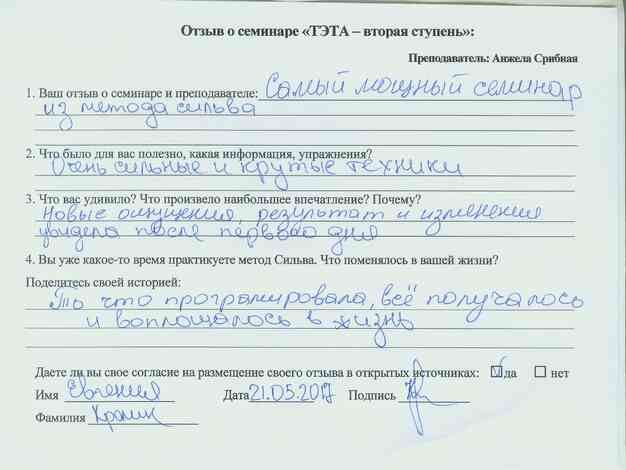 Отзыв о семинаре «ТЭТА – вторая ступень»:
Преподаватель: Анжела Срибная
1. Ваш отзыв о семинаре и преподавателе: Самый мощный семинар
из метода сильва
2. Что было для вас полезно, какая информация, упражнения?
Очень сильные и крутые техники
3. Что вас удивило? Что произвело наибольшее впечатление? Почему?
Новые ощущения, результат и изменения
увидела после первого дня
4. Вы уже какое-то время практикуете метод Сильва. Что поменялось в вашей жизни?
Поделитесь своей историей:
То что програмировала, всё получалось
и воплощалось в жизнь
Даете ли вы свое согласие на размещение своего отзыва в открытых источниках: ☑ да ☐ нет
Имя Евгения Дата 21.05.2017 Подпись
Фамилия